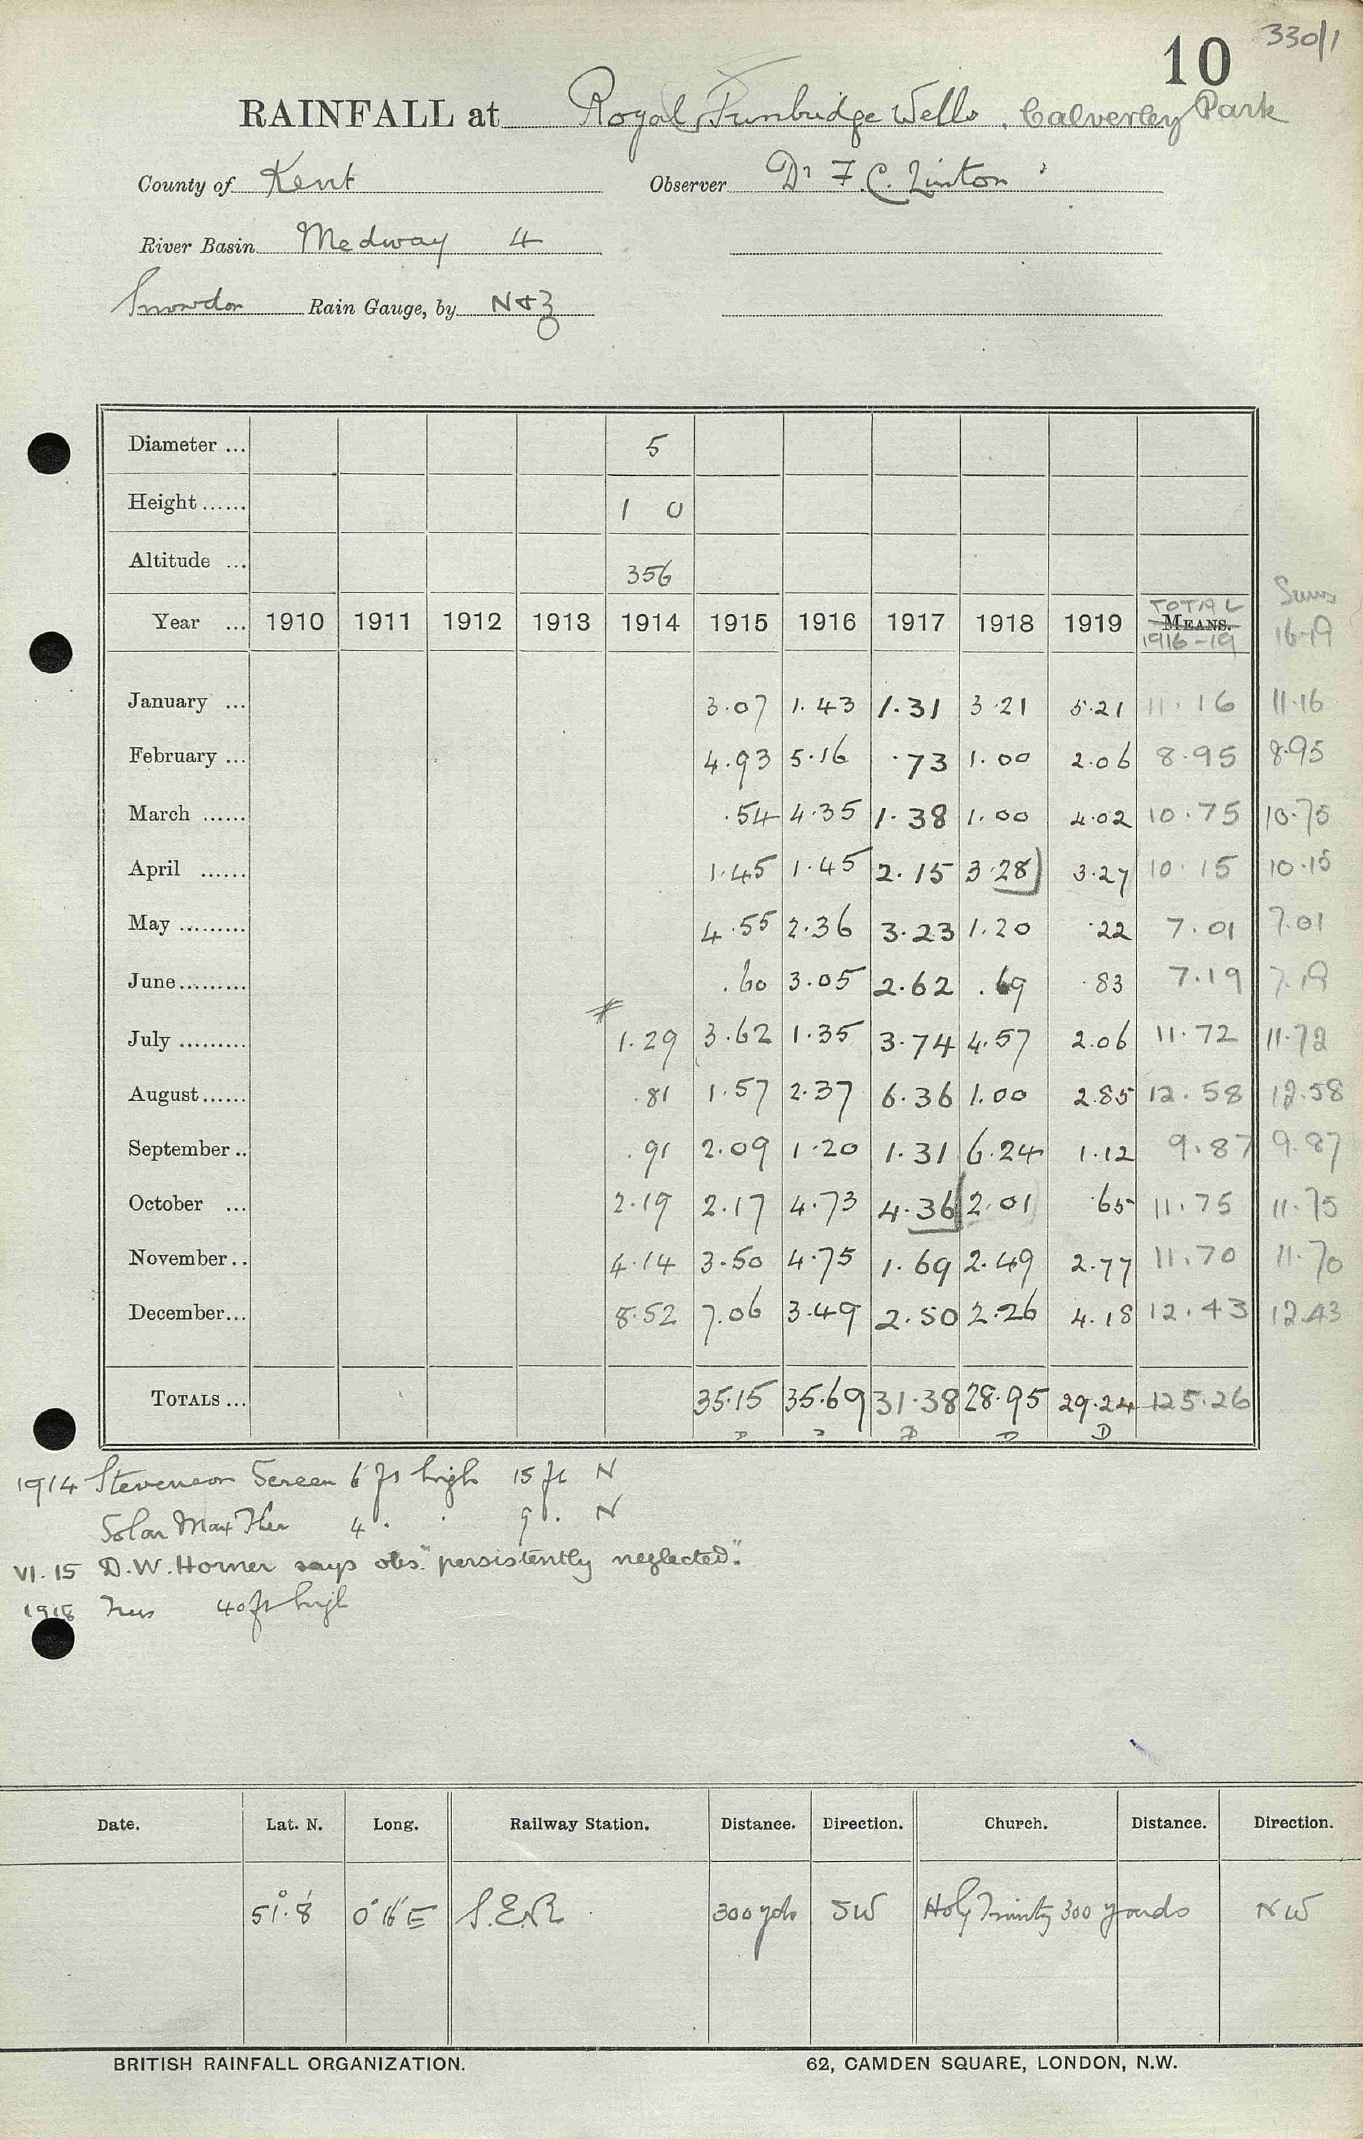 330/1
10
RAINFALL at Royal Tunbridge Wells. Calverley Park
County of Kent Observer Dr F. C. Linton
River Basin Medway 4
Snowdon Rain Gauge, by N & Z
Diameter ... 5
Height ...... 1 0
Altitude ... 356
Year ... 1910 1911 1912 1913 1914 1915 1916 1917 1918 1919 TOTAL MEANS. 1916-19 Sums 16-19
January ... 3.07 1.43 1.31 3.21 5.21 11.16 11.16
February ... 4.93 5.16 .73 1.00 2.06 8.95 8.95
March ...... .54 4.35 1.38 1.00 4.02 10.75 10.75
April ...... 1.45 1.45 2.15 3.28 3.27 10.15 10.15
May ......... 4.55 2.36 3.23 1.20 .22 7.01 7.01
June ......... .60 3.05 2.62 .69 .83 7.19 7.19
July ......... 1.29 3.62 1.35 3.74 4.57 2.06 11.72 11.72
August ...... .81 1.57 2.37 6.36 1.00 2.85 12.58 12.58
September .. .91 2.09 1.20 1.31 6.24 1.12 9.87 9.87
October ... 2.19 2.17 4.73 4.36 2.01 .65 11.75 11.75
November .. 4.14 3.50 4.75 1.69 2.49 2.77 11.70 11.70
December ... 8.52 7.06 3.49 2.50 2.26 4.18 12.43 12.43
TOTALS ... 35.15 35.69 31.38 28.95 29.24 125.26
D D D D D
1914 Stevenson Screen 6 ft high 15 ft N
Solar Max Ther 4 . . 9 . N
VI.15 D.W. Horner says obs. "persistently neglected".
1918 Trees 40 ft high
Date. Lat. N. Long. Railway Station. Distance. Direction. Church. Distance. Direction.
51°.8' 0°16'E S.E.R. 300 yds SW Holy Trinity 300 yards NW
BRITISH RAINFALL ORGANIZATION. 62, CAMDEN SQUARE, LONDON, N.W.